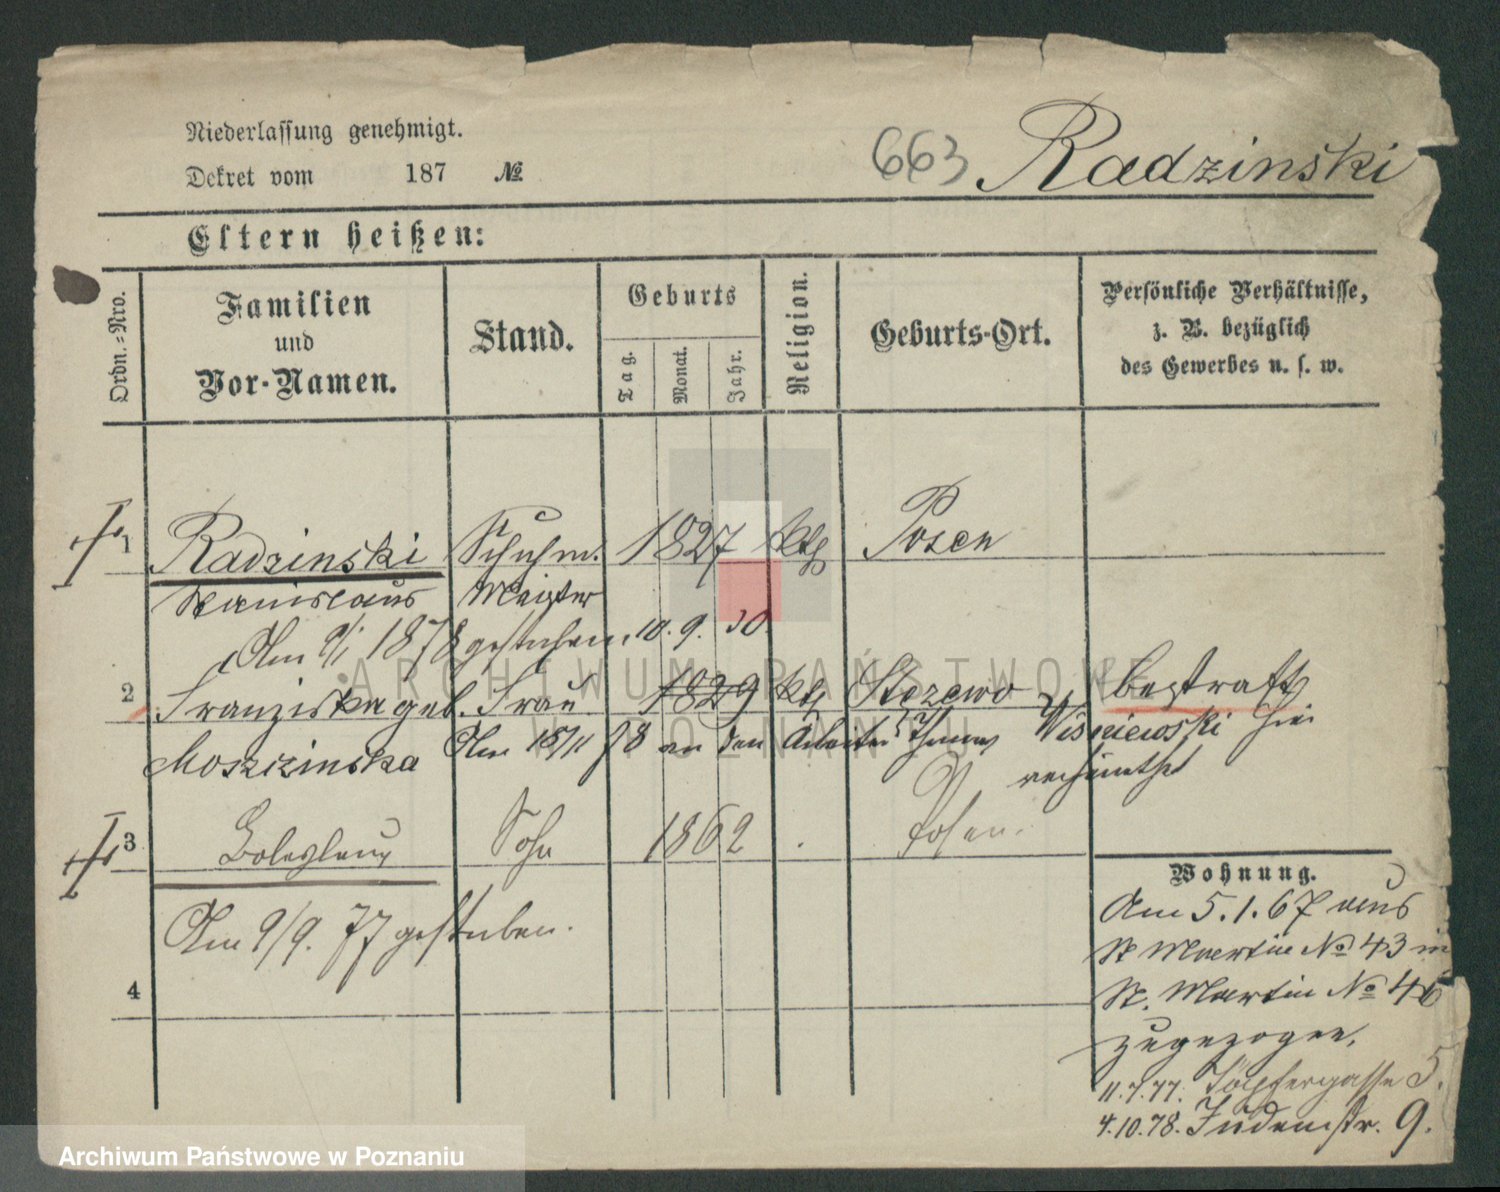 Niederlassung genehmigt.
Dekret vom 187 №
663 Radzinski
Eltern heißen:
Ordn.-Nro.
Familien
und
Vor-Namen.
Stand.
Geburts
Tag.
Monat.
Jahr.
Religion.
Geburts-Ort.
Persönliche Verhältnisse,
z. B. bezüglich
des Gewerbes u. s. w.
1 Radzinski Schuhm. 1827 kth Posen
Stanislaus Meister
Am 9/1 1878 gestorben. 10. 9. 30.
2 Franziska geb. Frau 1829 kth Stezewo bestraft
Moszczinska Am 18/11 78 an den Arbeiter Thomas Wisniewski hier
verheirathet
3 Boleslaus Sohn 1862 Posen.
Am 9/9. 77 gestorben.
4
Wohnung.
Am 5.1.67 aus
St Martin No 43 in
St. Martin No 46
zugezogen.
11.7.77. Töpfergasse 5.
4.10.78. Judenstr. 9.
ARCHIWUM PAŃSTWOWE
W POZNANIU
Archiwum Państwowe w Poznaniu